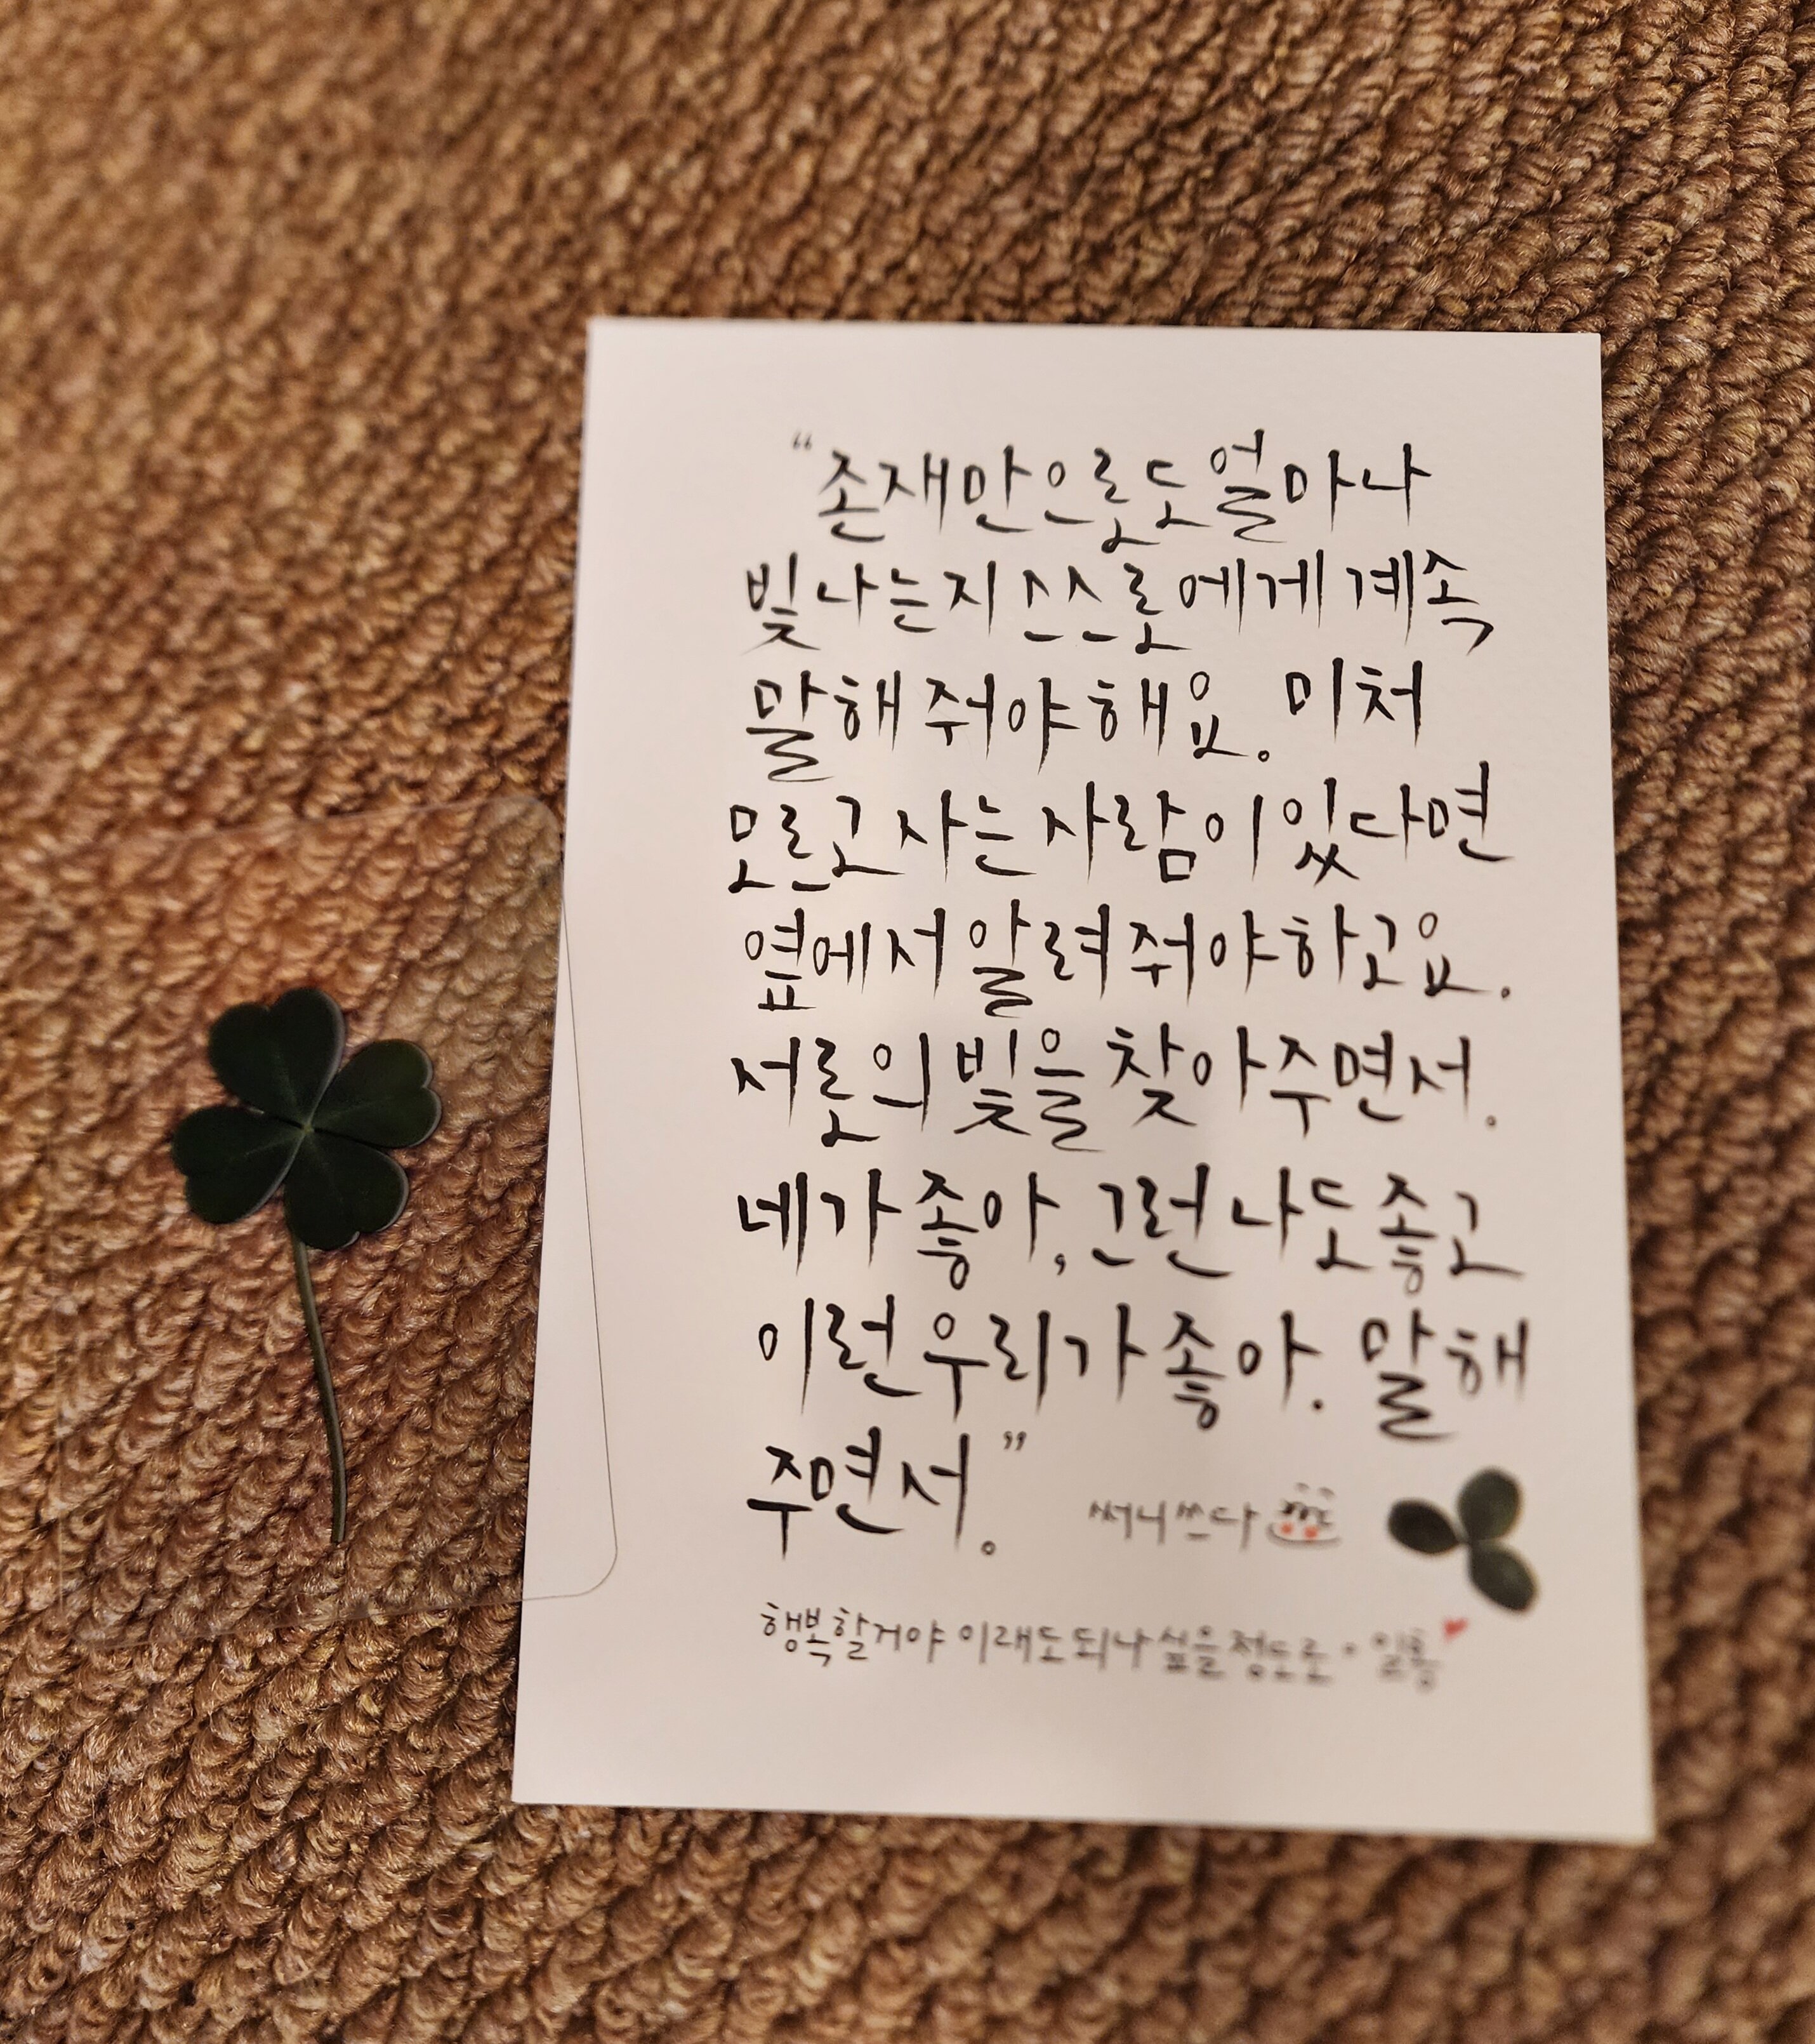 “존재만으로도 얼마나
빛나는지 스스로에게 계속
말해줘야해요. 미처
모르고 사는 사람이 있다면
옆에서 알려줘야하고요.
서로의 빛을 찾아주면서.
네가 좋아, 그런 나도 좋고
이런 우리가 좋아. 말해
주면서.”
써니쓰다
행복할거야 이래도 되나 싶을 정도로 · 일홍